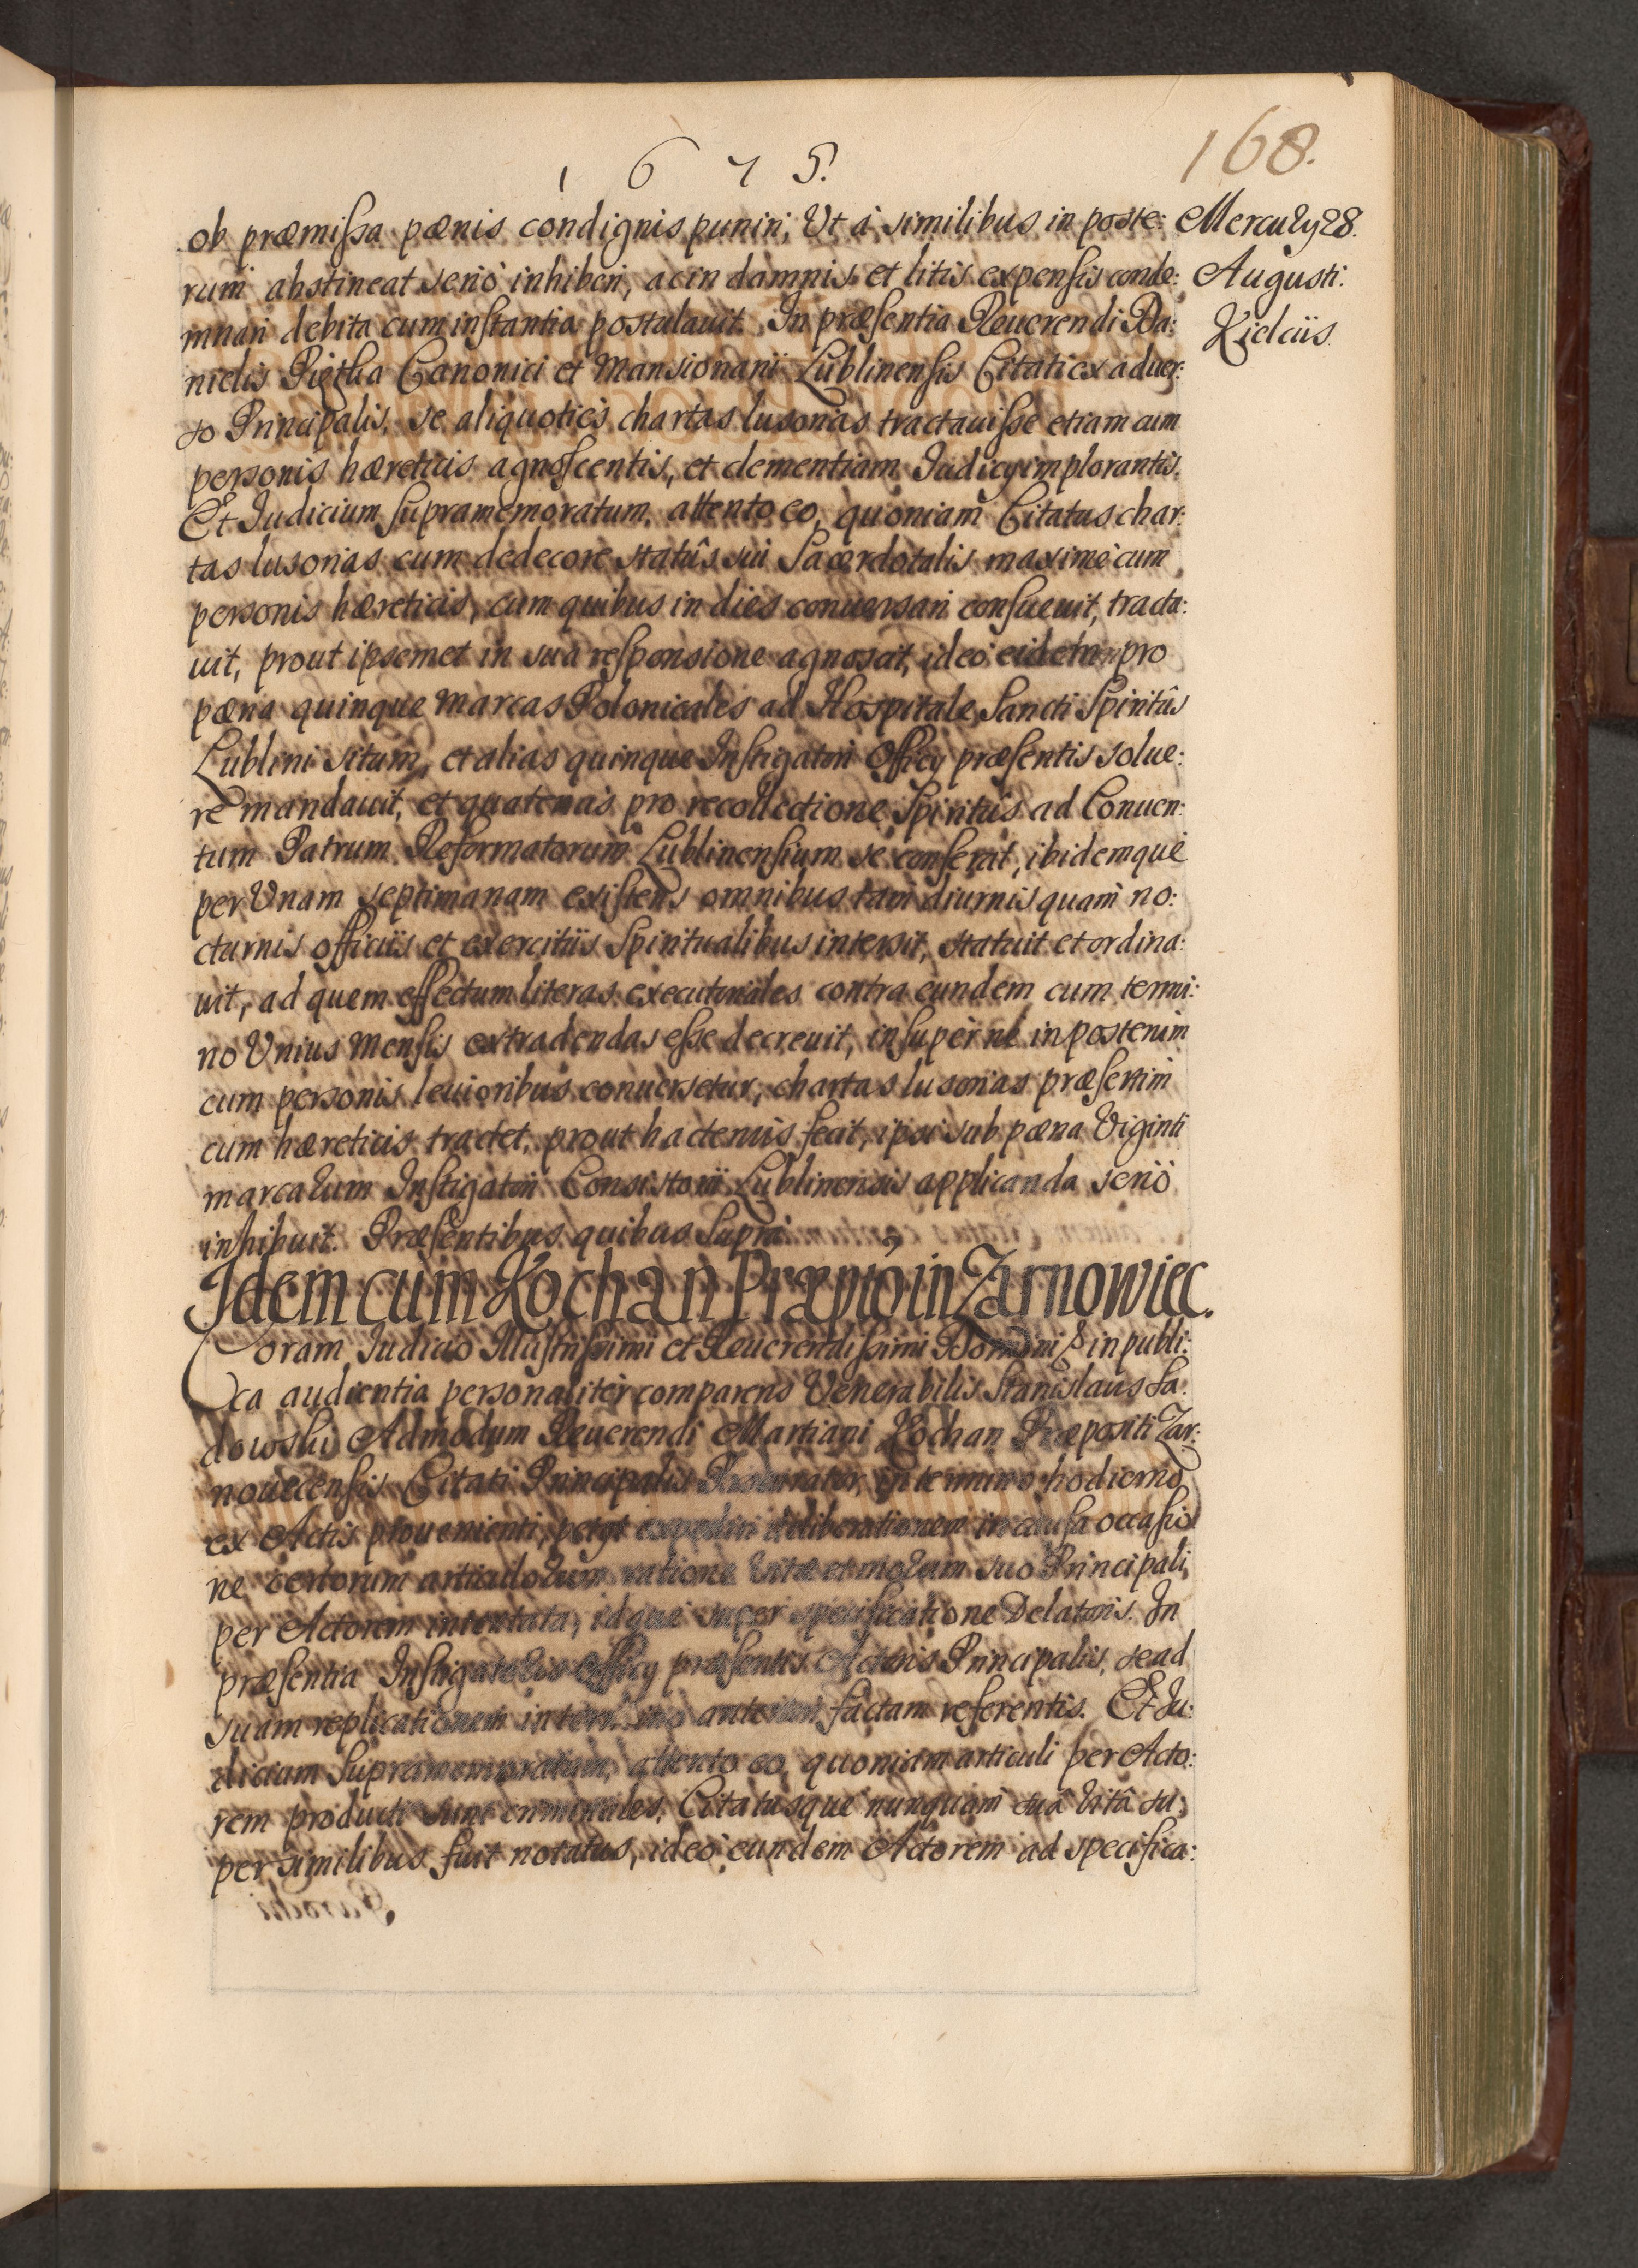 1675.
168.
ob præmissa pænis condignis puniri, Vt à similibus in poste:
rum abstineat seriò inhiberi, ac in damnis et litis expensis conde:
mnari debita cum instantia postulauit. In præsentia Reuerendi Da:
nielis Pietha Canonici et Mansionarii Lublinensis Citati ex aduer:
so Principalis, se aliquoties chartas lusorias tractauisse etiam cum
personis hæreticis agnoscentis, et clementiam Iudicy implorantis.
Et Iudicium supramemoratum, attento eo, quoniam Citatus char:
tas lusorias cum dedecore statûs sui Sacerdotalis maximè cum
personis hæreticis, cum quibus in dies conuersari consueuit, tracta:
uit, prout ipsemet in sua responsione agnoscit, ideò eidem pro
pæna quinque marcas Polonicales ad Hospitale Sancti Spiritûs
Lublini situm, et alias quinque Instigatori Officy præsentis solue:
re mandauit, et quatenus pro recollectione Spiritûs ad Conuen:
tum Patrum Reformatorum Lublinensium se conferat, ibidemque
per Vnam septimanam existens omnibus tam diurnis quam no:
cturnis officiis et exercitiis Spiritualibus intersit, statuit et ordina:
uit, ad quem effectum literas executoriales contra eundem cum termi:
no Vnius Mensis extradendas esse decreuit, insuper ne in posterum
cum personis leuioribus conuersetur, chartas lusorias præsertim
cum hæreticis tractet, prout hactenus fecit, ipsi sub pæna Viginti
marcarum Instigatori Consistorii Lublinensis applicanda seriò
inhibuit. Præsentibus quibus Supra
Idem cum Kochan Præpto in Zarnowiec.
Coram Iudicio Illustrissimi et Reuerendissimi Domini & in publi:
ca audientia personaliter comparens Venerabilis Stanislaus Sa:
dowski Admodum Reuerendi Martiani Kochan Præpositi Zar:
nouecensis Citati Principalis Procurator, in termino hodierno
ex Actis prouenienti, petyt expediri deliberationem in causa occasio
ne certorum articulorum ratione Vitæ et morum suo Principali
per Actorem intentata, idque super specificatione Delatoris. In
præsentia Instigatoris Officy præsentis Actoris Principalis, se ad
suam replicationem in termino anteriori factam referentis. Et Iu:
dicium Supramemoratum, attento eo, quoniam articuli per Acto:
rem producti sunt criminales, Citatusque nunquam sua Vitâ su:
per similibus fuit notatus, ideò eundem Actorem ad specifica:
Mercury 28.
Augusti.
Kielciis.